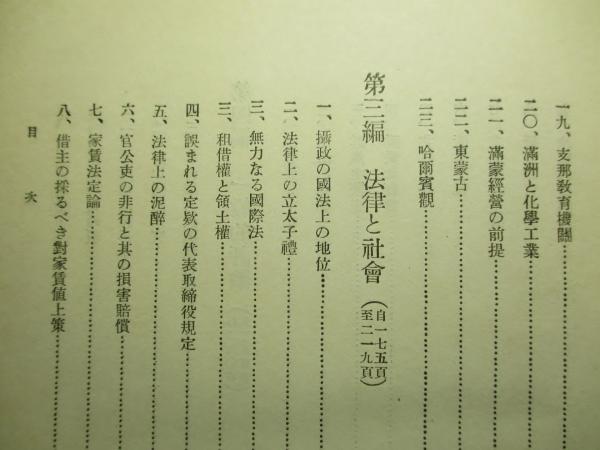 一九、支那教育機關
二〇、滿洲と化學工業
二一、滿蒙經營の前提
二二、東蒙古
二三、哈爾賓觀
第三編 法律と社會（自一七五頁至二一九頁）
一、攝政の國法上の地位
二、法律上の立太子禮
三、無力なる國際法
三、租借權と領土權
四、誤まれる定款の代表取締役規定
五、法律上の泥醉
六、官公吏の非行と其の損害賠償
七、家賃法定論
八、借主の採るべき對家賃値上策
目次